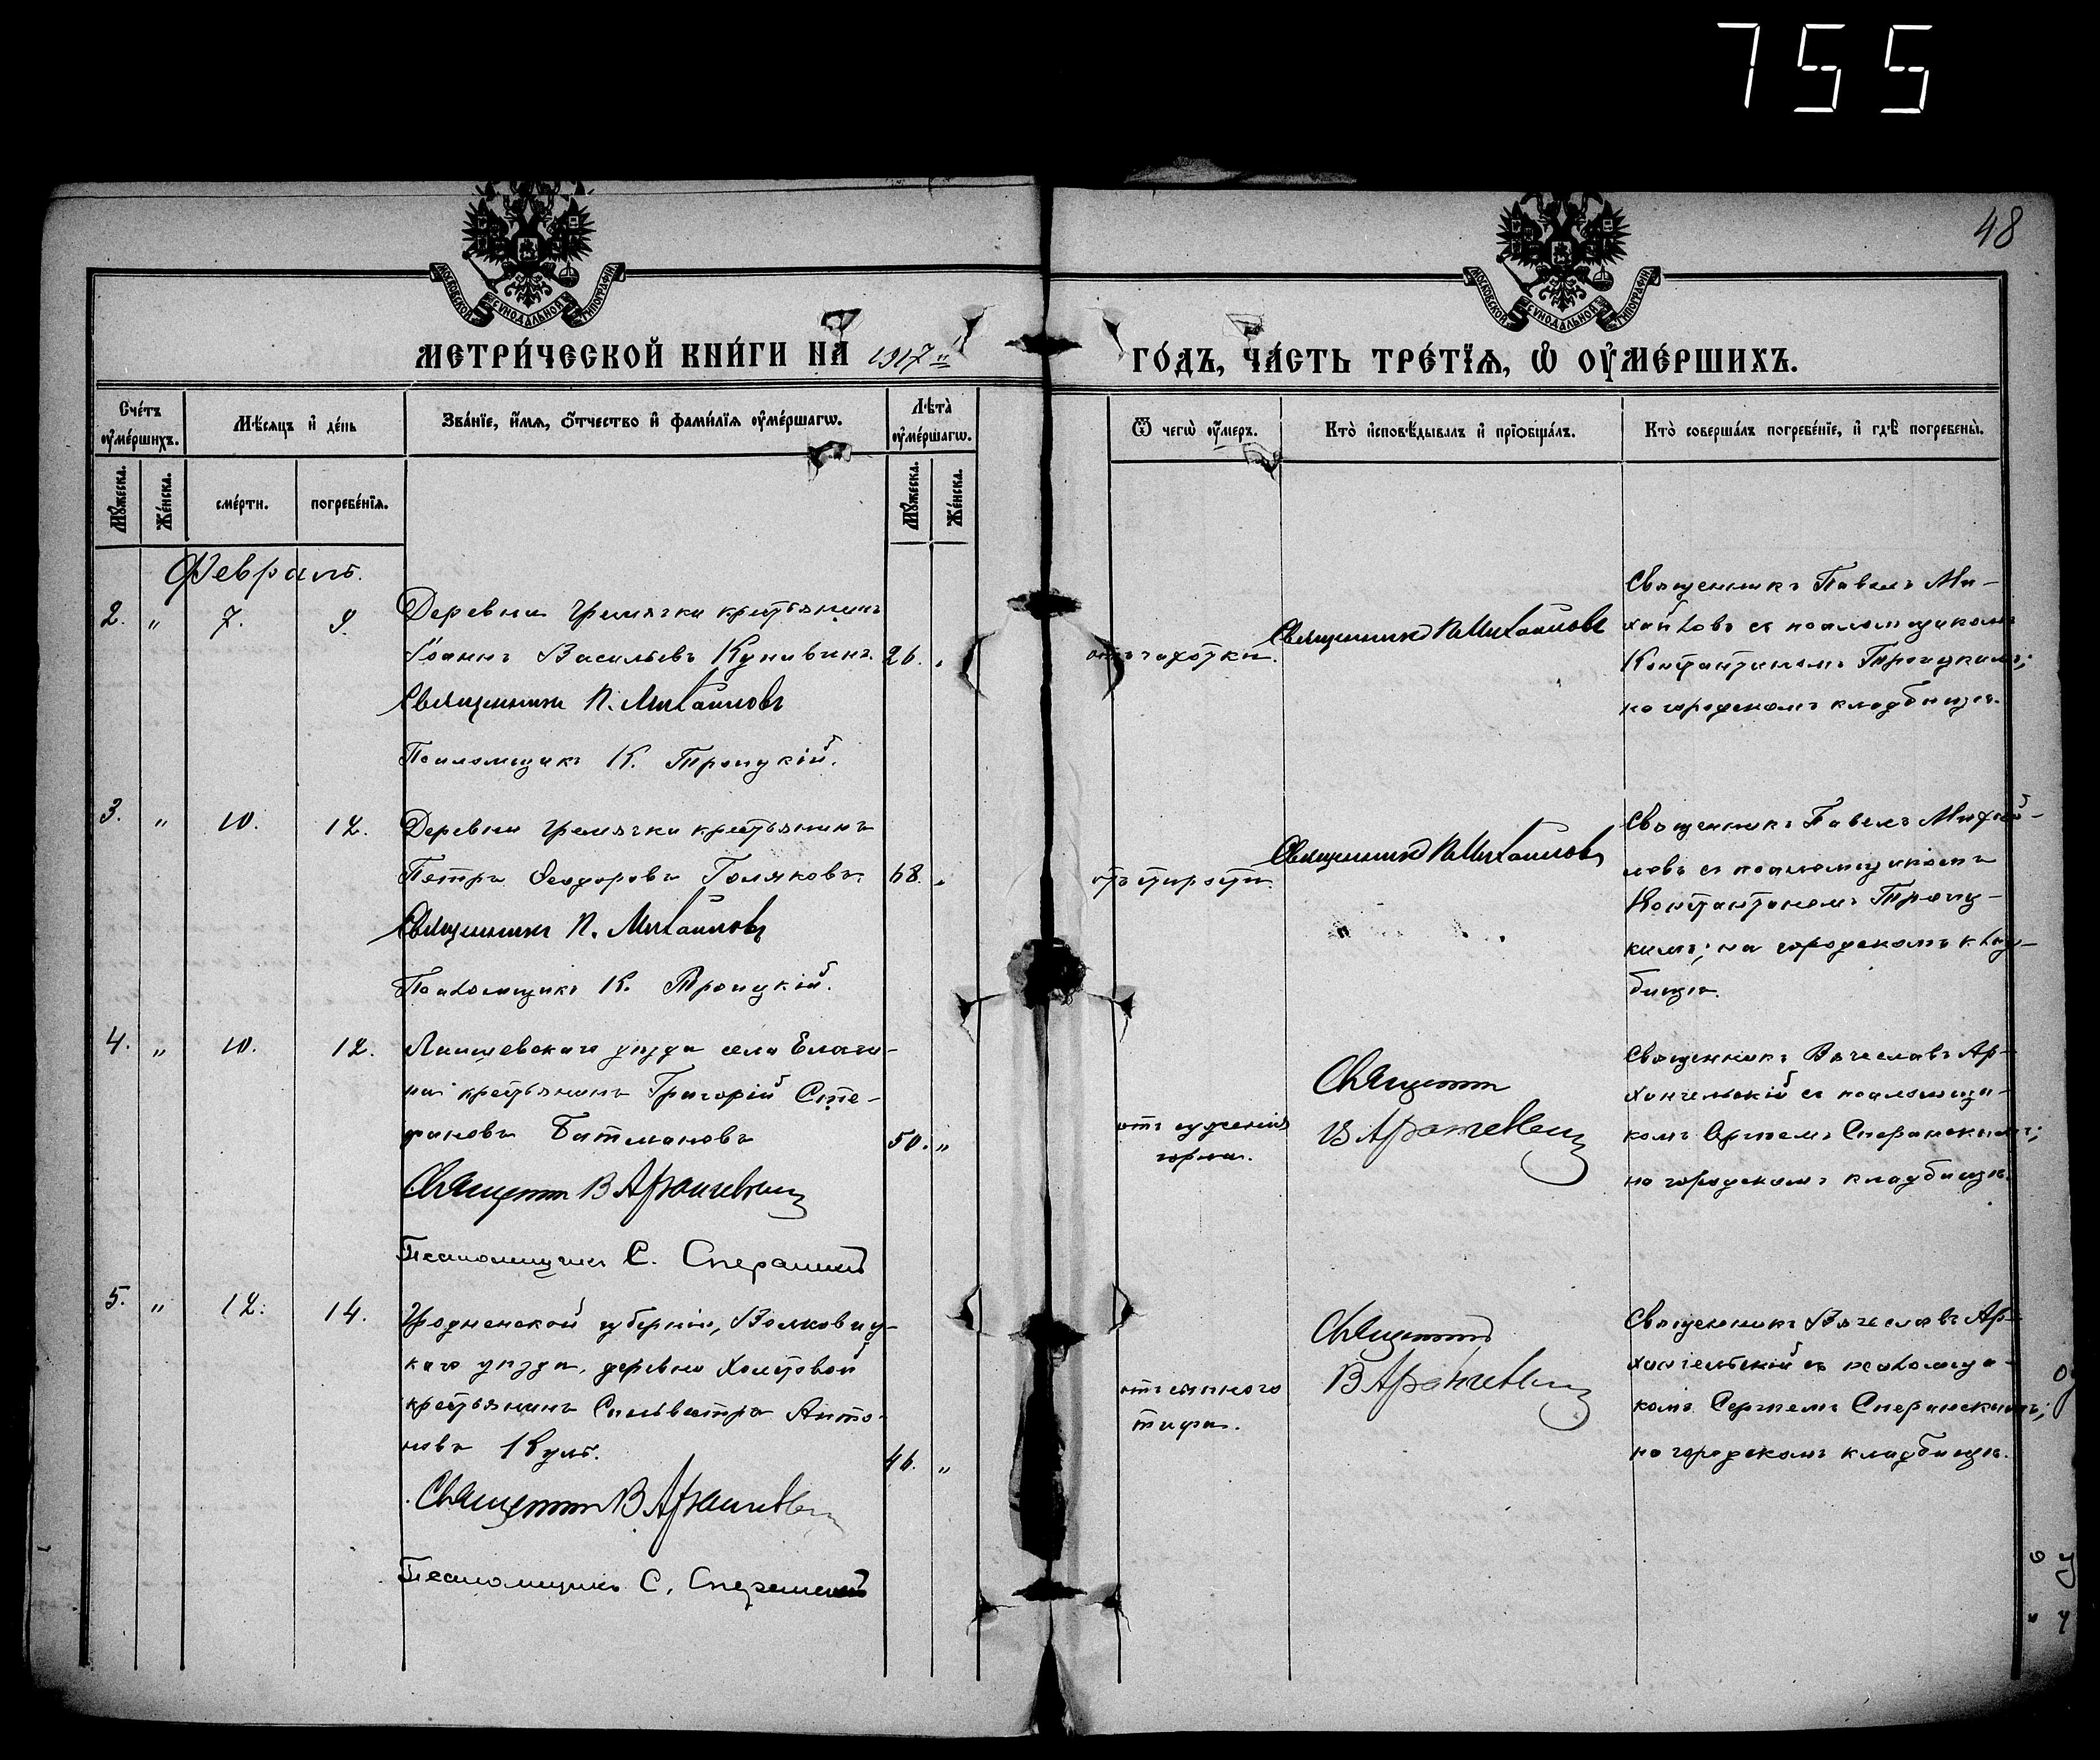 755
48
МОСКОВСКОЙ СѴНОДАЛЬНОЙ ТИПОГРАФІИ
МОСКОВСКОЙ СѴНОДАЛЬНОЙ ТИПОГРАФІИ
МЕТРИ́ЧЕСКОЙ КНИ́ГИ НА 1917 ГО́ДЪ, ЧА́СТЬ ТРЕ́ТЇѦ, Ѡ҆ ОУ҆МЕ́РШИХЪ.
Сче́тъ оу҆ме́ршихъ.
Мѣ́сѧцъ и҆ де́нь
Зва́нїе, и҆́мѧ, ѻ҆́тчество и҆ фами́лїѧ оу҆ме́ршагѡ.
Лѣ̑та оу҆ме́ршагѡ.
Ѿ чегѡ̀ оу҆́меръ.
Кто̀ и҆сповѣ́дывалъ и҆ прїѡбща́лъ.
Кто̀ соверша́лъ погребе́нїе, и҆ гдѣ̀ погребены̀.
Мꙋ́жеска.
Же́нска.
сме́рти.
погребе́нїѧ.
Мꙋ́жеска.
Же́нска.
Февраль.
2. " 7. 9.
Деревни Гремячки крестьянинъ
Іоаннъ Васильевъ Кунавинъ. 26. "
Священникъ П. Михайловъ
Псаломщикъ К. Троицкій.
отъ чахотки.
Священникъ П. Михайловъ
Священникъ Павелъ Ми-
хайловъ съ псаломщикомъ
Константиномъ Троицкимъ;
на городскомъ кладбищѣ.
3. " 10. 12.
Деревни Гремячки крестьянинъ
Петръ Ѳеодоровъ Голяковъ. 68. "
Священникъ П. Михайловъ
Псаломщикъ К. Троицкій.
отъ старости.
Священникъ П. Михайловъ
Священникъ Павелъ Михай-
ловъ съ псаломщикомъ
Константиномъ Троиц-
кимъ; на городскомъ клад-
бищѣ.
4. " 10. 12.
Лаишевскаго уѣзда села Елаги-
на крестьянинъ Григорій Сте-
фановъ Батмановъ 50. "
Священникъ В Архангельскій
Псаломщикъ С. Сперанскій
отъ суженія
горла.
Священникъ
В Архангельскій
Священникъ Вячеславъ Ар-
хангельскій съ псаломщи-
комъ Сергѣемъ Сперанскимъ;
на городскомъ кладбищѣ.
5. " 12. 14.
Гродненской губерніи, Волковыс-
каго уѣзда, деревни
крестьянинъ Сильвестръ Анто-
новъ Куль. 46. "
Священникъ В Архангельскій
Псаломщикъ С. Сперанскій
отъ сыпного
тифа.
Священникъ
В Архангельскій
Священникъ Вячеславъ Ар-
хангельскій съ псаломщи-
комъ Сергѣемъ Сперанскимъ;
на городскомъ кладбищѣ.